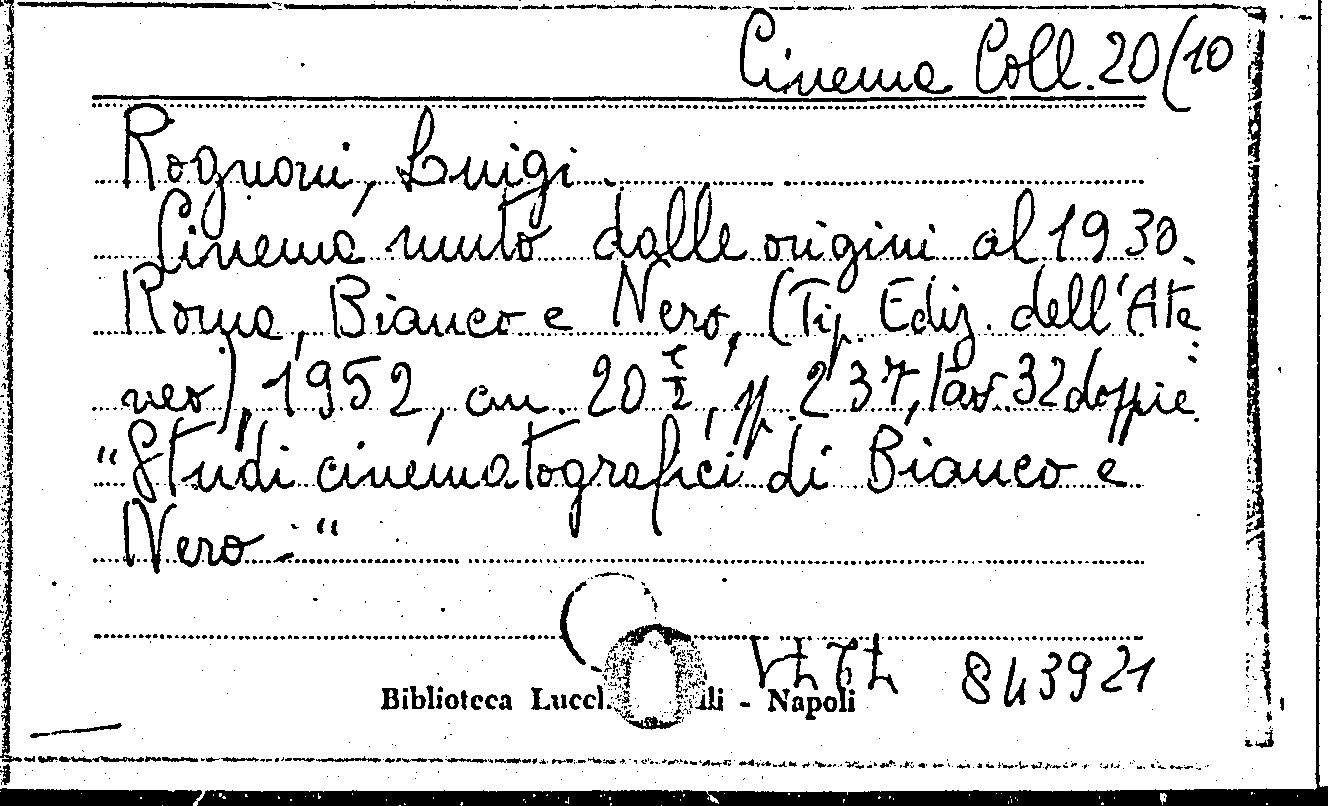 Cinema Coll. 20(10
Rognoni, Luigi.
Cinema muto dalle origini al 1930.
Roma, Bianco e Nero, (Tip. Ediz. dell'Ate
neo), 1952, cm. 20 ½, pp. 237, tav. 32 doppie.
"Studi cinematografici di Bianco e
Nero."
843921
Biblioteca Lucch li - Napoli